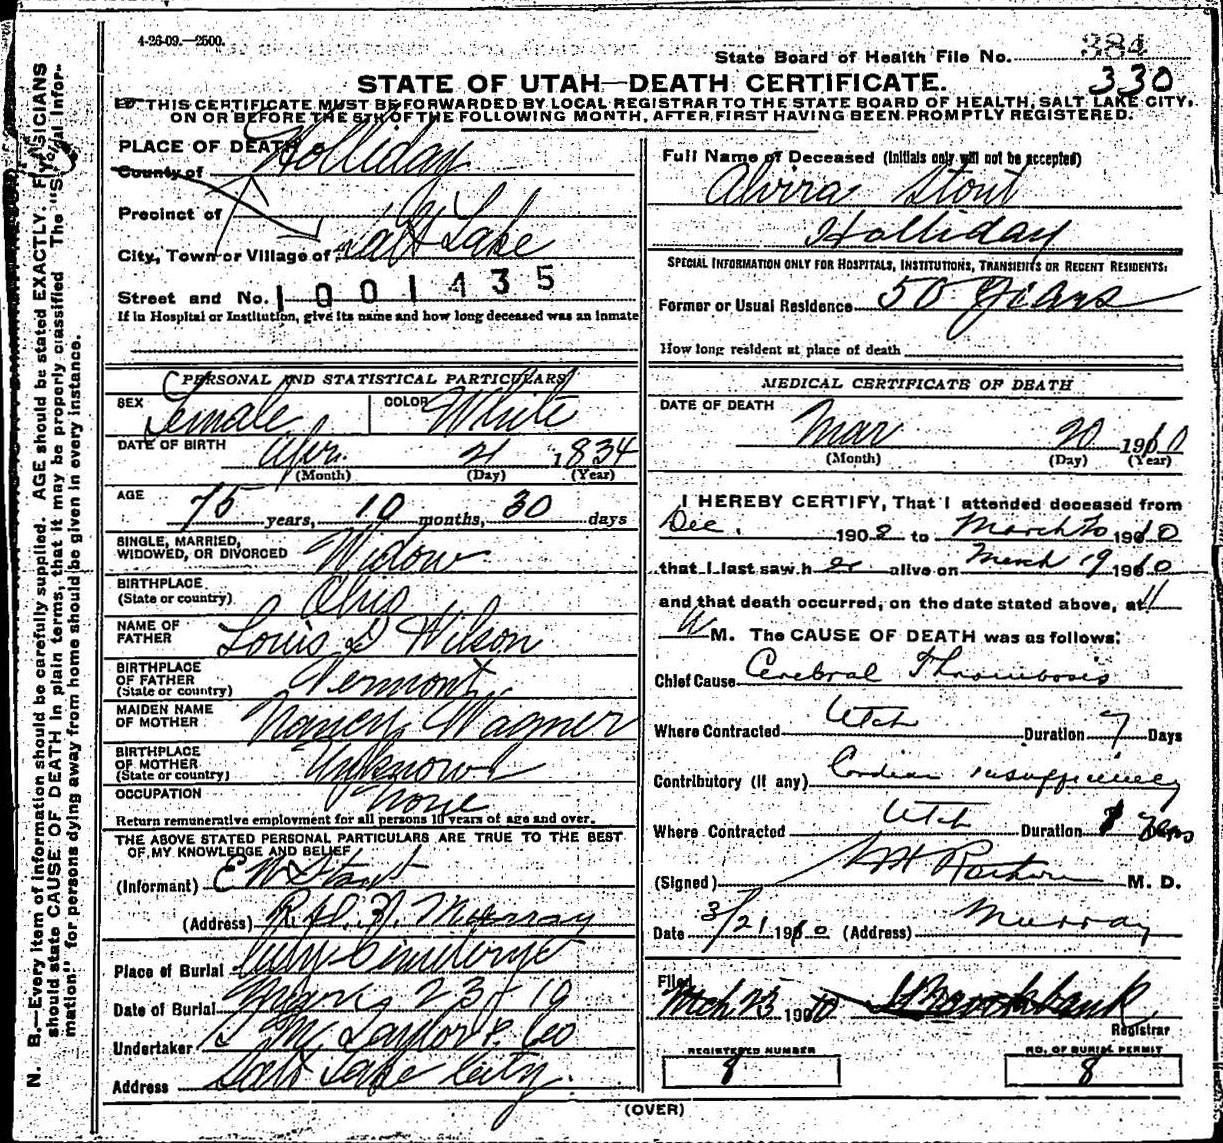 4-26-09.—2500.
State Board of Health File No. 384
330
STATE OF UTAH—DEATH CERTIFICATE.
THIS CERTIFICATE MUST BE FORWARDED BY LOCAL REGISTRAR TO THE STATE BOARD OF HEALTH, SALT LAKE CITY,
ON OR BEFORE THE 5TH OF THE FOLLOWING MONTH, AFTER FIRST HAVING BEEN PROMPTLY REGISTERED.
PLACE OF DEATH
County of Holliday
Precinct of
City, Town or Village of Salt Lake
Street and No. 1001435
If in Hospital or Institution, give its name and how long deceased was an inmate
PERSONAL AND STATISTICAL PARTICULARS
SEX Female COLOR White
DATE OF BIRTH Apr. 21 1834
(Month) (Day) (Year)
AGE
75 years, 10 months, 30 days
SINGLE, MARRIED,
WIDOWED, OR DIVORCED Widow
BIRTHPLACE
(State or country) Ohio
NAME OF
FATHER Louis D Wilson
BIRTHPLACE
OF FATHER
(State or country) Vermont
MAIDEN NAME
OF MOTHER Nancy Wagner
BIRTHPLACE
OF MOTHER
(State or country) Unknown
OCCUPATION None
Return remunerative employment for all persons 10 years of age and over.
THE ABOVE STATED PERSONAL PARTICULARS ARE TRUE TO THE BEST
OF MY KNOWLEDGE AND BELIEF
(Informant) E W Stout
(Address) Murray
Place of Burial City Cemetery
Date of Burial 23rd 10
Undertaker S M Taylor & Co
Address Salt Lake City.
Full Name of Deceased (Initials only will not be accepted)
Alvira Stout
Holliday
SPECIAL INFORMATION ONLY FOR HOSPITALS, INSTITUTIONS, TRANSIENTS OR RECENT RESIDENTS:
Former or Usual Residence 50 Years
How long resident at place of death
MEDICAL CERTIFICATE OF DEATH
DATE OF DEATH
Mar 20 1910
(Month) (Day) (Year)
I HEREBY CERTIFY, That I attended deceased from
Dec. 1908 to March 20 1910
that I last saw h er alive on March 19 1910
and that death occurred, on the date stated above, at 11
A M. The CAUSE OF DEATH was as follows:
Chief Cause Cerebral Thrombosis
Where Contracted Utah Duration 7 Days
Contributory (if any) Cardiac insufficiency
Where Contracted Utah Duration Years
(Signed) M. D.
Date 3/21 1910 (Address) Murray
Filed
Mch 23 1910 Brookbank
Registrar
REGISTERED NUMBER
8
NO. OF BURIAL PERMIT
8
(OVER)
N. B.—Every item of information should be carefully supplied. AGE should be stated EXACTLY. PHYSICIANS
should state CAUSE OF DEATH in plain terms, that it may be properly classified. The "Special Infor-
mation" for persons dying away from home should be given in every instance.